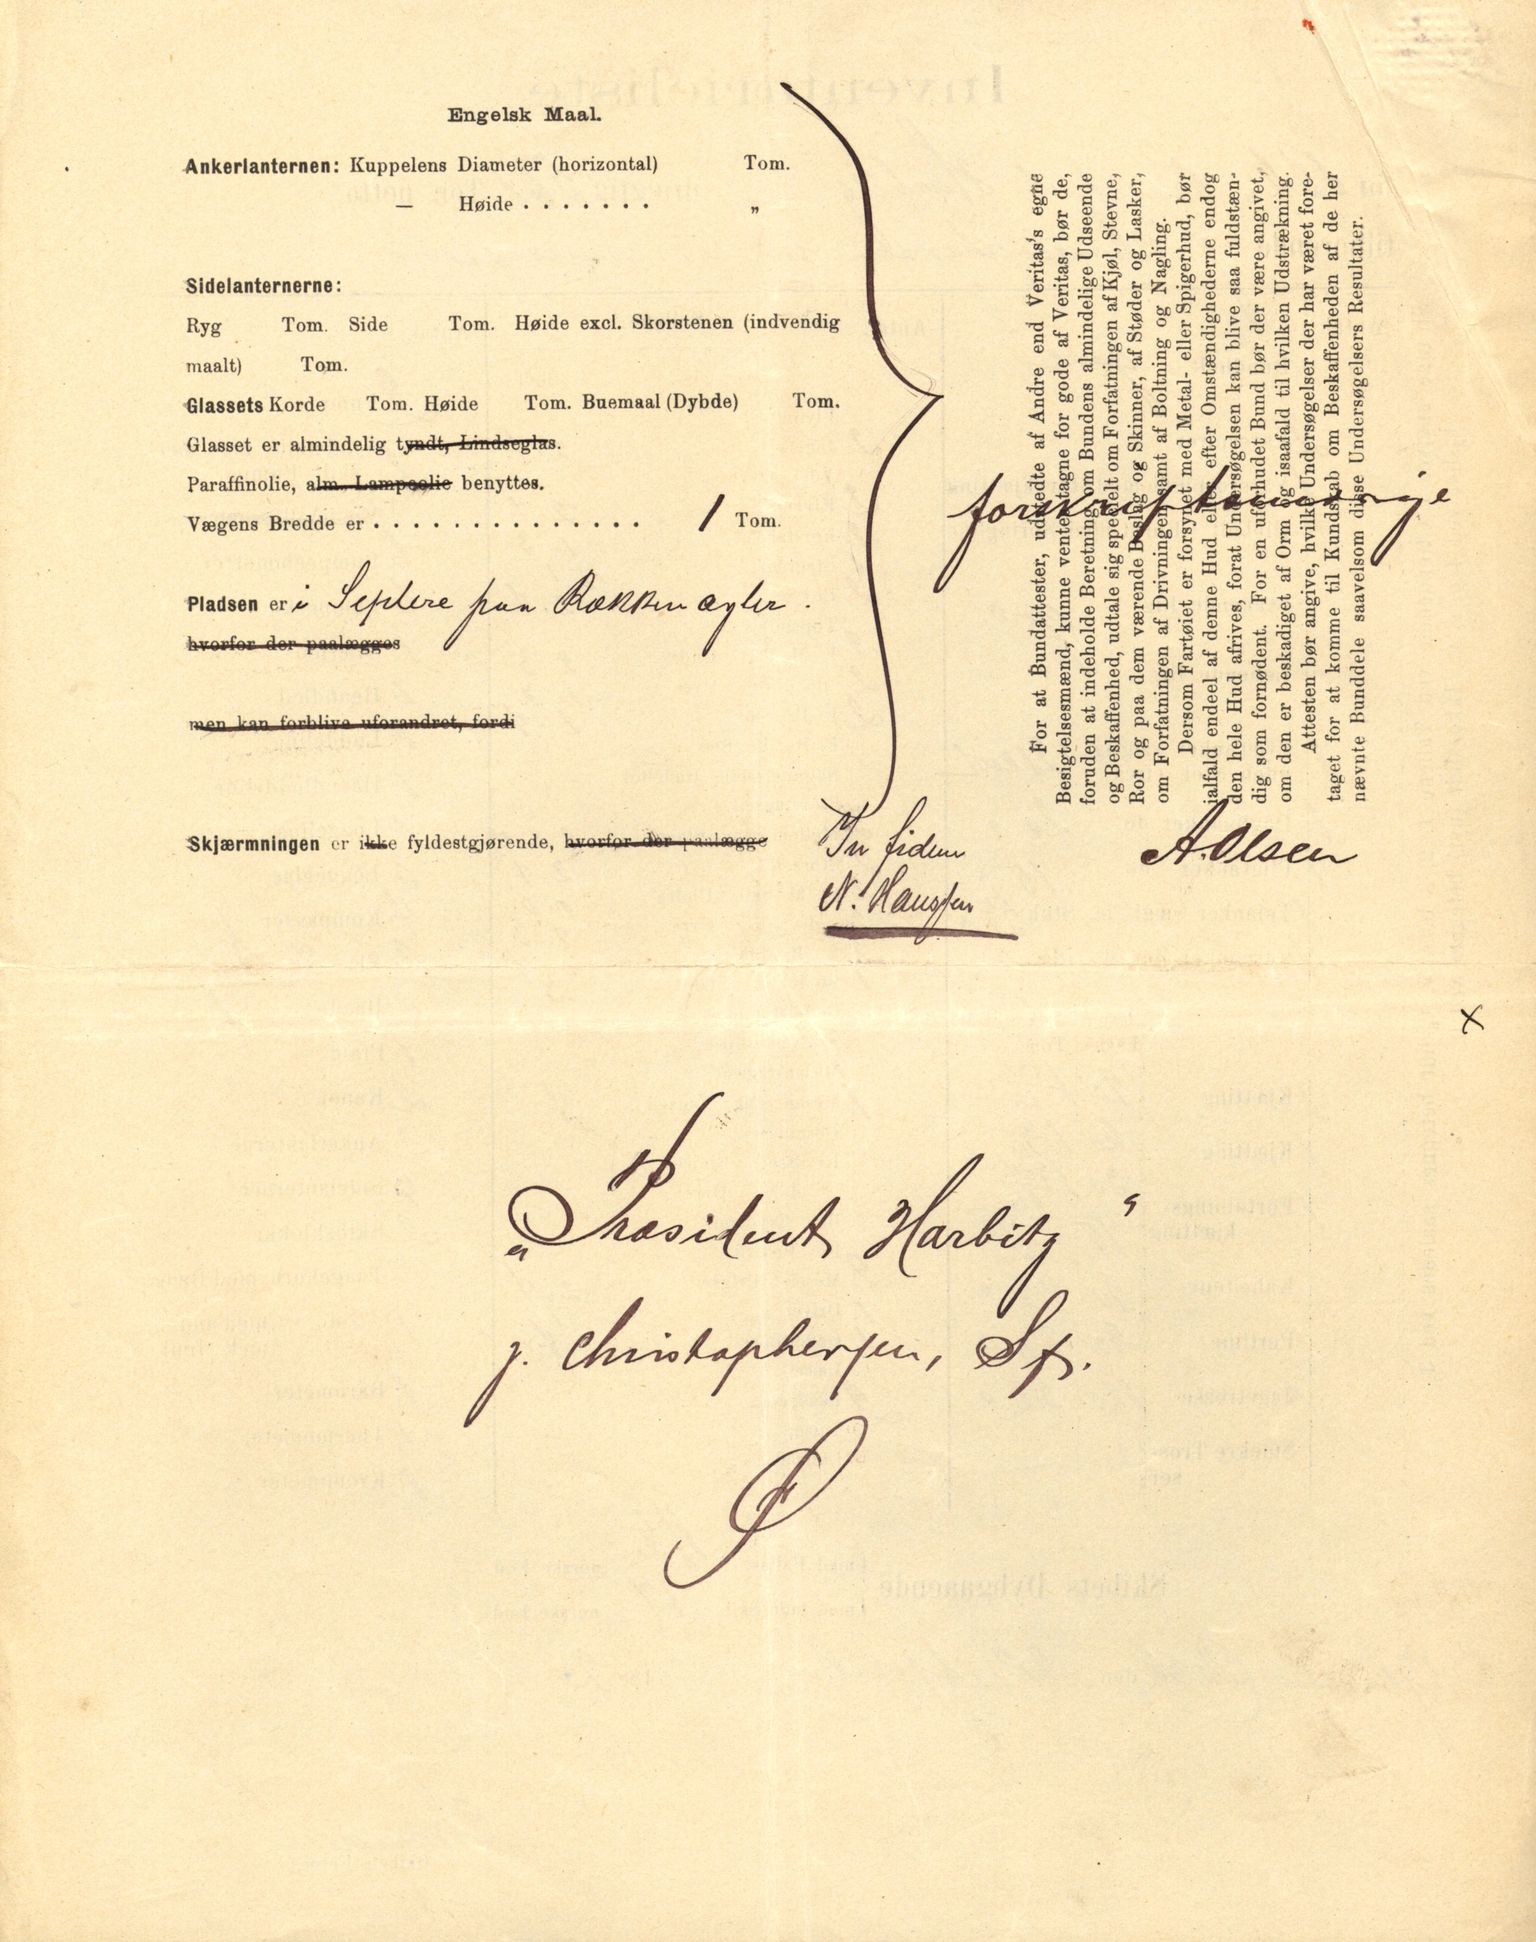 Engelsk Maal.
Ankerlanternen: Kuppelens Diameter (horizontal) Tom.
— Høide . . . . . . . „
Sidelanternerne:
Ryg Tom. Side Tom. Høide excl. Skorstenen (indvendig
maalt) Tom.
Glassets Korde Tom. Høide Tom. Buemaal (Dybde) Tom.
Glasset er almindelig tyndt, Lindseglas.
Paraffinolie, alm. Lampeolie benyttes.
Vægens Bredde er . . . . . . . . . . . . . . . 1 Tom.
Pladsen er i Septere paa Rækken agter.
hvorfor der paalægges
men kan forblive uforandret, fordi
Skjærmningen er ikke fyldestgjørende, hvorfor der paalægge
forskriftsmæssige
For at Bundattester, udstedte af Andre end Veritas's egne
Besigtelsesmænd, kunne ventes tagne for gode af Veritas, bør de,
foruden at indeholde Beretning om Bundens almindelige Udseende
og Beskaffenhed, udtale sig specielt om Forfatningen af Kjøl, Stevne,
Ror og paa dem værende Beslag og Skinner, af Støder og Lasker,
om Forfatningen af Drivningen samt af Boltning og Nagling.
Dersom Fartøiet er forsynet med Metal- eller Spigerhud, bør
ialfald endeel af denne Hud eller efter Omstændighederne endog
den hele Hud afrives, forat Undersøgelsen kan blive saa fuldstæn-
dig som fornødent. For en uforhudet Bund bør der være angivet,
om den er beskadiget af Orm og isaafald til hvilken Udstrækning.
Attesten bør angive, hvilke Undersøgelser der har været fore-
taget for at komme til Kundskab om Beskaffenheden af de her
nævnte Bunddele saavelsom disse Undersøgelsers Resultater.
In fidem
N. Hanssen
A. Olsen
x
„Præsident Harbitz"
J. Christophersen, Sf.